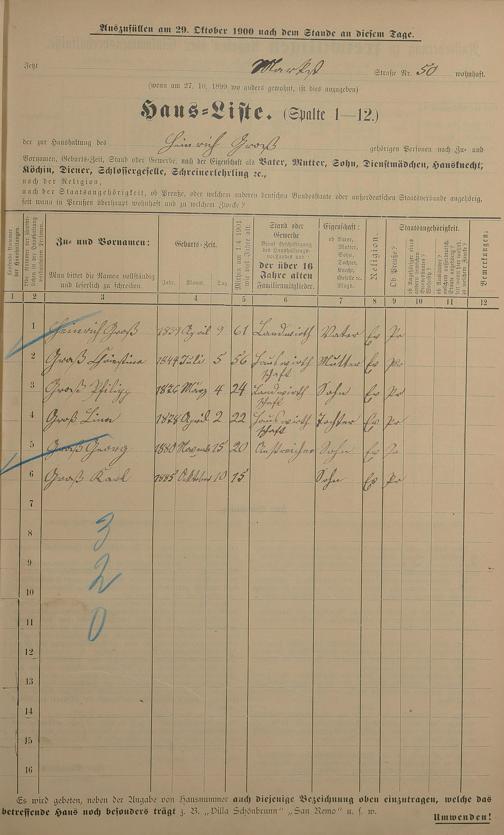 Auszufüllen am 29. Oktober 1900 nach dem Stande an diesem Tage.
Jetzt Markt Straße Nr. 50 wohnhaft.
(wenn am 27. 10. 1899 wo anders gewohnt, ist dies anzugeben)
Haus-Liste. (Spalte 1—12.)
der zur Haushaltung des Heinrich Groß gehörigen Personen nach Zu- und
Vornamen, Geburts-Zeit, Stand oder Gewerbe, nach der Eigenschaft als Vater, Mutter, Sohn, Dienstmädchen, Hausknecht,
Köchin, Diener, Schlossergeselle, Schreinerlehrling ec.,
nach der Religion,
nach der Staatsangehörigkeit, ob Preuße, oder welchem anderen deutschen Bundesstaate oder außerdeutschen Staatsverbande angehörig,
seit wann in Preußen überhaupt wohnhaft und zu welchem Zwecke?
Zu- und Vornamen:
Man bittet die Namen vollständig
und leserlich zu schreiben.
Geburts-Zeit.
Jahr. Monat. Tag
Stand oder
Gewerbe
der über 16
Jahre alten
Familienmitglieder.
Eigenschaft:
ob Vater,
Mutter,
Sohn,
Tochter,
Knecht,
Geselle ec.
Magd.
Religion.
Staatsangehörigkeit.
Ob Preuße?
Bemerkungen.
1 2 3 4 5 6 7 8 9 10 11 12
1 Heinrich Groß 1839 April 9 61 Landwirth Vater Ev Pr
2 Groß Christina 1844 Juli 5 56 Hauswirth Mutter Ev Pr
schaft
3 Groß Philipp 1876 März 4 24 Landwirth Sohn Ev Pr
schaft
4 Groß Lina 1878 April 2 22 Hauswirth Tochter Ev Pr
schaft
5 Groß Georg 1880 Novemb 15 20 Anstreicher Sohn Ev Pr
6 Groß Karl 1885 Oktober 10 15 Sohn Ev Pr
7
3
8
9
2
10
11
0
12
13
14
15
16
Es wird gebeten, neben der Angabe von Hausnummer auch diejenige Bezeichnung oben einzutragen, welche das
betreffende Haus noch besonders trägt z. B. „Villa Schönbrunn" „San Remo" u. s. w.
Umwenden!